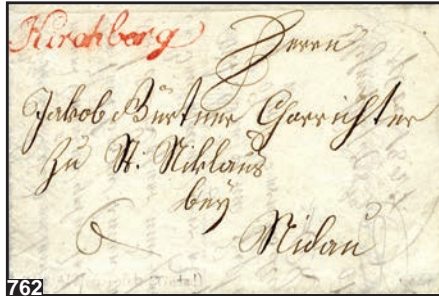 Kirchberg
Herrn
Jakob Bürtner Chorrichter
zu St: Niklaus
bey
Nidau
762